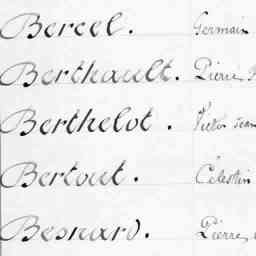 Bercel. Germain
Berthault. Pierre
Berthelot. Victor Jean
Bertout. Célestin
Besnard. Pierre,